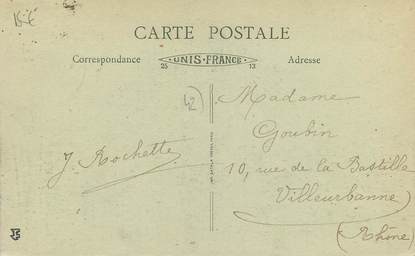 15 €
CARTE POSTALE
Correspondance
UNIS-FRANCE
25
13
Adresse
42
J. Rochette
Madame
Goubin
10, rue de la Bastille
Villeurbanne
(Rhône)